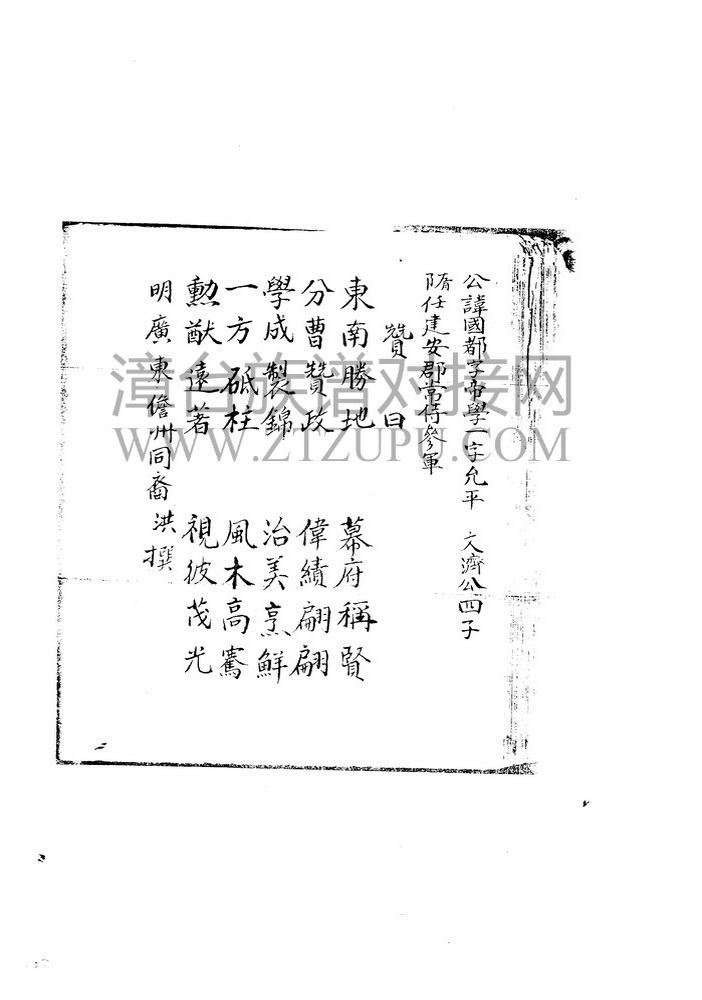 公諱國都字帝學一字允平 文濟公四子
隋任建安郡常侍參軍
贊曰
東南勝地 幕府稱賢
分曹贊政 偉績翩翩
學成製錦 治美烹鮮
一方砥柱 風木高騫
勳猷遠著 視彼茂光
明廣東儋州同裔洪撰
漳台族谱对接网
WWW.ZTZUPU.COM